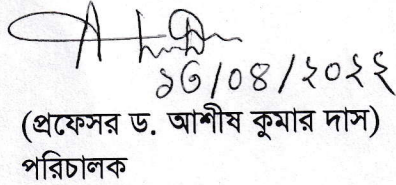 ১৩/০৪/২০২২
(প্রফেসর ড. আশীষ কুমার দাস)
পরিচালক